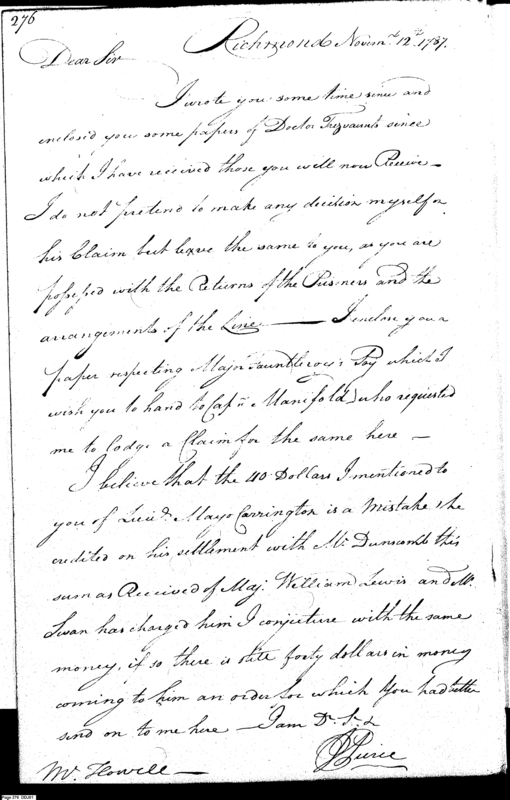 276
Richmond Novem.r 12.th 1787.
Dear Sir
I wrote you some time since and
enclosed you some papers of Doctor Trezvaunts since
which I have received those you will now Receive —
I do not pretend to make any decision myself on
his Claim but leave the same to you, as you are
possessed with the Returns of the Prisoners and the
arrangements of the Line — I enclose you a
paper respecting Major Fauntleroy's Pay which I
wish you to hand to Cap.n Manifold, who requested
me to lodge a Claim for the same here —
I believe that the 40 Dollars I mentioned to
you of Lieu.t Mayo Carrington is a Mistake, he
credited on his settlement with Mr. Dunscomb this
sum as Received of Maj. William Lewis and Mr.
Swan has charged him I conjecture with the same
money, if so there is still forty dollars in money
coming to him an order for which You had better
send on to me here — I am Dr. Sr. &
Pierce
Mr. Howell —
Page 276 DDJ01